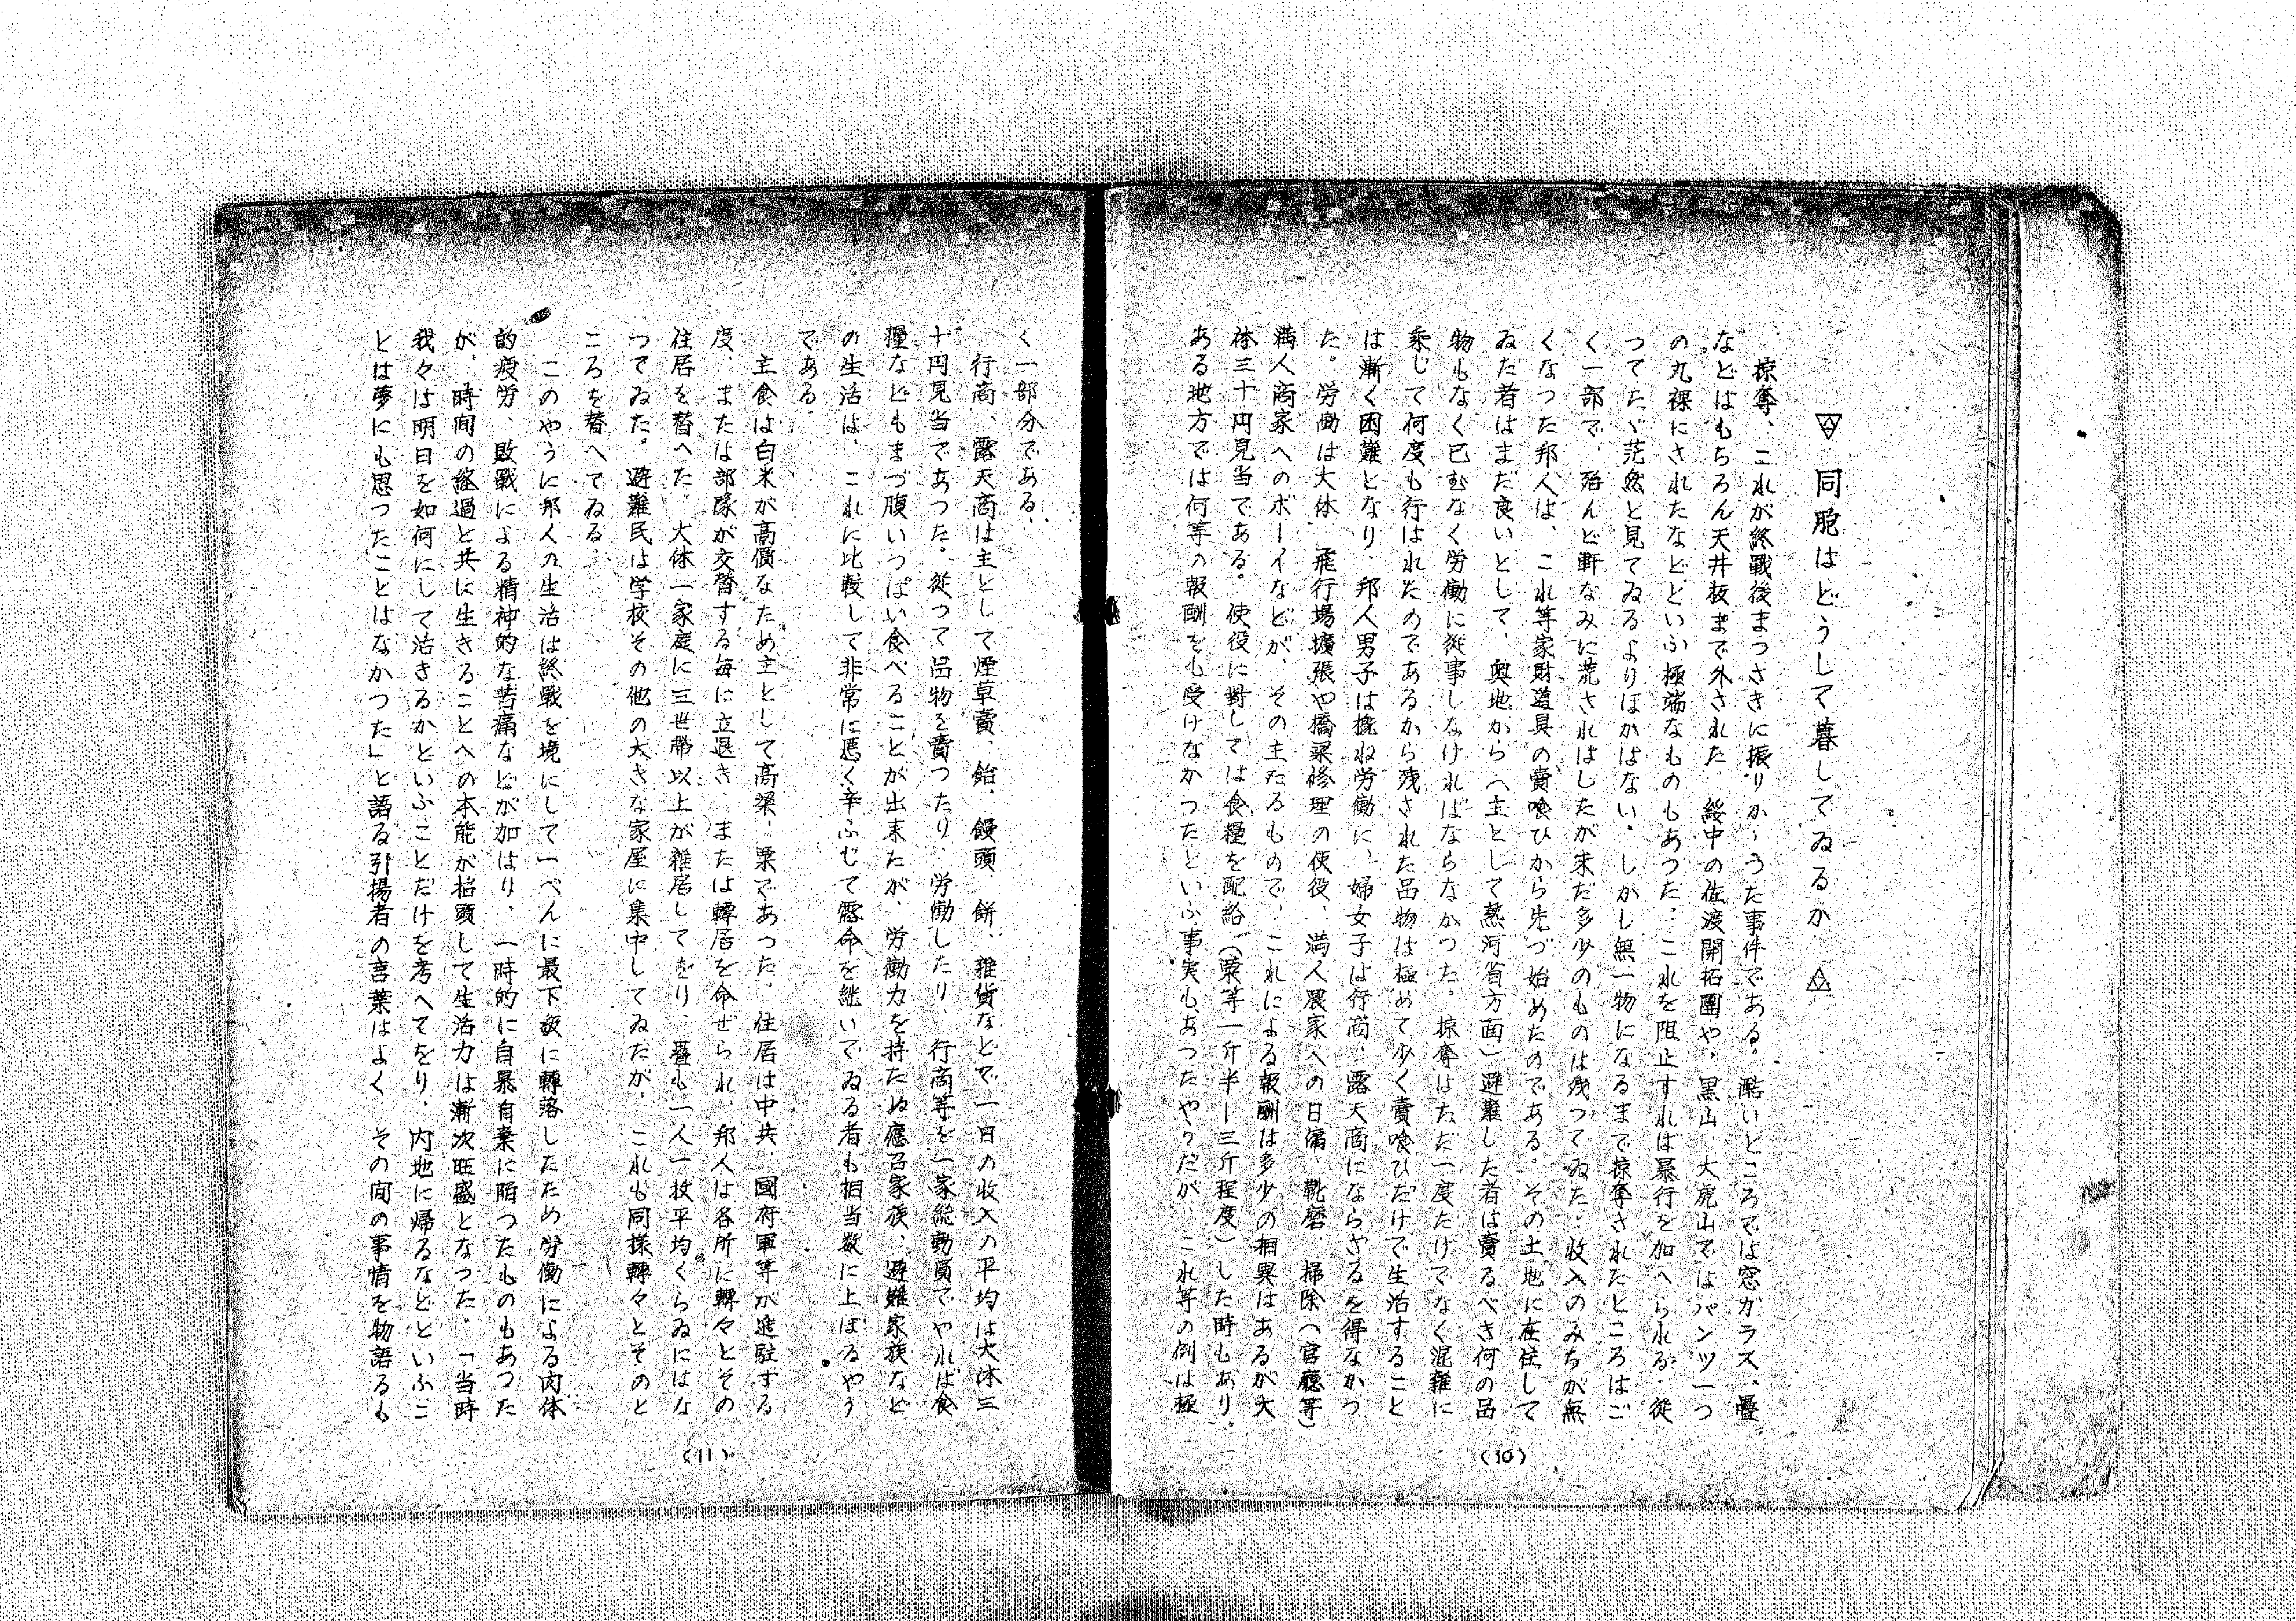 同胞はどうして暮してゐるか
掠奪、これが終戰後まつさきに振りかゝうた事件である。酷いところでは窓ガラス、疊
などはもちろん天井板まで外された。綏中の佐渡開拓團や、黒山、大虎山ではパンツ一つ
の丸裸にされたなどといふ極端なものもあつた。これを阻止すれば暴行を加へられる。従
つてたゞ茫然と見てゐるよりほかはない。しかし無一物になるまで掠奪されたところはご
く一部で、殆んど軒なみに荒されはしたが未だ多少のものは残つてゐた。收入のみちが無
くなつた邦人は、これ等家財道具の賣喰ひから先づ始めたのである。その土地に在住して
ゐた者はまだ良いとして、奥地から（主として熱河省方面）避難した者は賣るべき何の品
物もなく已むなく労働に従事しなければならなかつた。掠奪はただ一度だけでなく混雜に
乘じて何度も行はれたのであるから残された品物は極めて少く賣喰ひだけで生活すること
は漸く困難となり、邦人男子は概ね労働に、婦女子は行商、露天商にならざるを得なかつ
た。労働は大体、飛行場擴張や橋梁修理の使役、満人農家への日傭、靴磨、掃除（官廳等）
満人商家へのボーイなどが、その主たるもので、これによる報酬は多少の相異はあるが大
体三十円見当である。使役に對しては食糧を配給（粟等一斤半ー三斤程度）した時もあり。
ある地方では何等の報酬をも受けなかつたといふ事実も、あつたやうだが、これ等の例は極
(10)
く一部分である。
行商、露天商は主として煙草賣、飴、饅頭、餅、雜貨などで一日の收入の平均は大体三
十円見当であつた。従つて品物を賣つたり、労働したり、行商等を一家総動員でやれば食
糧などもまづ腹いつぱい食べることが出来たが、労働力を持たぬ應召家族、避難家族など
の生活は、これに比較して非常に悪く辛ふじて露命を継いでゐる者も相当数に上ぼるやう
である。
主食は白米が高價なため主として高梁、粟であつた。住居は中共、國府軍等が進駐する
度、または部隊が交替する毎に立退き、または轉居を命ぜられ、邦人は各所に轉々とその
住居を替へた。大体一家庭に三世帶以上が雜居してをり、疊も一人一枚平均くらゐにはな
つてゐた。避難民は学校その他の大きな家屋に集中してゐたが、これも同様轉々とそのと
ころを替へてゐる。
このやうに邦人の生活は終戰を境にして一ぺんに最下底に轉落したため労働による肉体
的疲労、敗戰による精神的な苦痛などが加はり、一時的に自暴自棄に陥つたものもあつた
が、時間の経過と共に生きることへの本能が抬頭して生活力は漸次旺盛となつた。「当時
我々は明日を如何にして活きるかといふことだけを考へてをり、内地に帰るなどといふこ
とは夢にも思つたことはなかつた」と語る引揚者の言葉はよく、その間の事情を物語るも
(11)